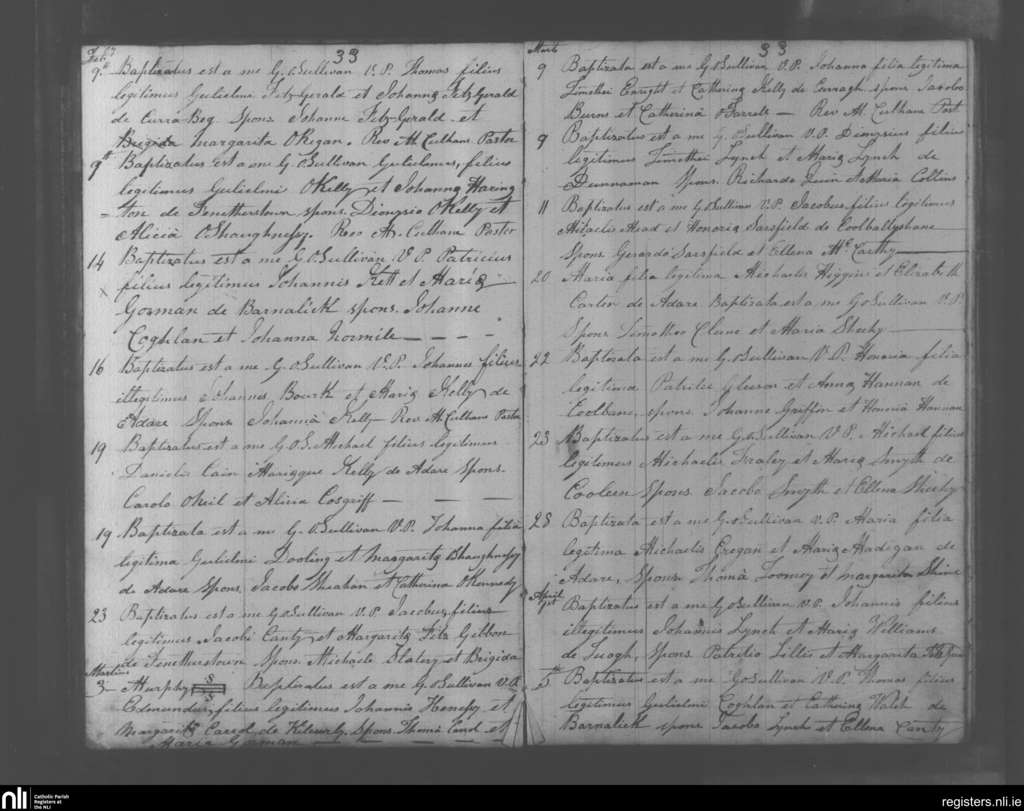 Feb. 33
9th Baptizatus est a me G. O Sullivan V.P. Thomas filius
legitimus Gulielmi Fitz-Gerald et Johanna Fitz Gerald
de Curra Beg. Spons. Johanne Fitz-Gerald et
Brigida Margarita ORegan. Rev M. Culhane Pastor
9th Baptizatus est a me G O Sullivan Gulielmus, filius
legitimus Gulielmi OKelly et Johanna Haring
=ton de Finetterstown spons. Dionysio OKelly et
Alicia O Shaughnessy. Rev M. Culhane Pastor
14 Baptizatus est a me G O Sullivan V P Patricius
x filius legitimus Johannis Kett et Maria
Gorman de Barnalick spons. Johanne
Coghlan et Johanna Normile
16 Baptizatus est a me G. O Sullivan V.P. Johannes filius
illegitimus Johannes Bourk et Maria Kelly de
Adare Spons Johanna Kelly Rev M Culhane Pastor
19 Baptizatus est a me G O S. Michael filius legitimus
Danielis Cain Mariaque Kelly de Adare Spons.
Carolo ONeil et Alicia Cosgriff
19 Baptizata est a me G. O Sullivan V.P. Johanna filia
legitima Gulielmi Dooling et Margarita OShaughnessy
de Adare Spons. Jacobo Sheahan et Catherina OKennedy
23 Baptizatus est a me G O Sullivan V.P. Jacobus filius
legitimus Jacobi Canty et Margarita Fitz Gibbon
de Finetterstown Spons. Michaele Slatery et Brigida
Martius
3 Murphy Baptizatus est a me G. O Sullivan V.P.
Edmundus, filius legitimus Johannis Henessy et
Margarita Carol de Spons. Thoma Carol et
Maria Gorman
March 33
9 Baptizata est a me G. O Sullivan V.P. Johanna filia legitima
Timothei Enright et Catherina Kelly de Curragh, spons Jacobo
Burns et Catherina O Farrell — Rev M. Culham Past
9 Baptizatus est a me G. O Sullivan V.P. Dionysius filius
legitimus Timothei Lynch et Maria Lynch de
Dunnaman Spons. Richardo Quin et Maria Collins
11 Baptizatus est a me G. O Sullivan V.P. Jacobus filius legitimus
Michaelis Mead et Honoria Sarsfield de Coolballyshane
Spons. Gerardo Sarsfield et Ellena McCarthy
20 Maria filia legitima Michaelis Higgins et Elizabeth
Carlin de Adare Baptizata est a me G O Sullivan V.P
Spons Timotheo Clune et Maria Sheehy
22 Baptizata est a me G. O Sullivan V.P. Honoria filia
legitima Patricii Gleeson et Anna Hannan de
spons. Johanne Griffin et Honoria Hannan
23 Baptizatus est a me G. O Sullivan V P. Michael filius
legitimus Michaelis Fraley et Maria Smyth de
Cooleen Spons Jacobo Smyth et Ellena Sheehy
28 Baptizata est a me G. O Sullivan V.P. Maria filia
legitima Michaelis Cregan et Maria Madigan de
Adare, Spons. Thoma Toomey et Margarita Shine
April
1st Baptizatus est a me G. O Sullivan V.P. Johannis filius
illegitimus Johannis Lynch et Maria Williams
de Tuogh, Spons Patricio Lillis et Margarita
5th Baptizatus est a me G O Sullivan V.P. Thomas filius
legitimus Gulielmi Coghlan et Catherina Walsh de
Barnalick spons Jacobo Lynch et Ellena Canty
nli Catholic Parish
Registers at
the NLI
registers.nli.ie